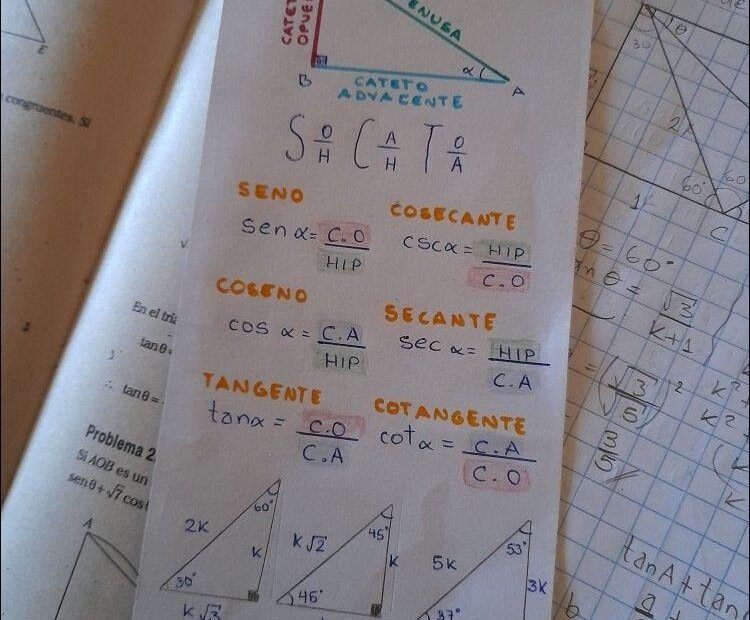 CATETO
OPUES
ENUSA
B
α
A
CATETO
ADYACENTE
S O/H C A/H T O/A
SENO
sen α = C.O/HIP
COSECANTE
csc α = HIP/C.O
COSENO
cos α = C.A/HIP
SECANTE
sec α = HIP/C.A
TANGENTE
tan α = C.O/C.A
COTANGENTE
cot α = C.A/C.O
2K
60°
K
30°
K√3
K√2
45°
K
45°
5K
53°
3K
37°
E
congruentes. Si
En el triá
tan θ =
∴ tan θ =
Problema 2
Si AOB es un
sen θ + √7 cos
A
30
θ
2
60°
60
1
C
θ = 60°
θ = √3/K+1
= (√3/√5)²
3/5
K²
K²
tan A + tan
a
b